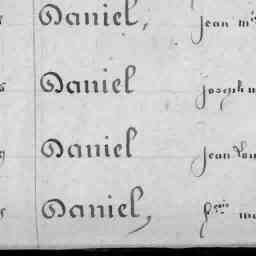 Daniel, jean
Daniel joseph
Daniel jean
Daniel,